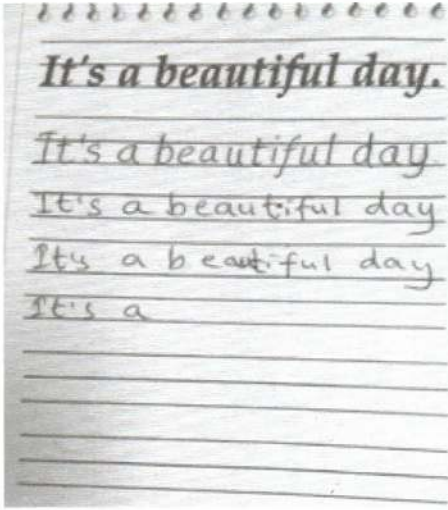 It's a beautiful day.
It's a beautiful day
It's a beautiful day
It's a beautiful day
It's a